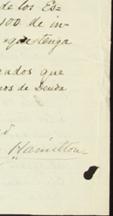 de los Es-
100 de in-
que tenga
cados que
nos de Deuda
Hamilton